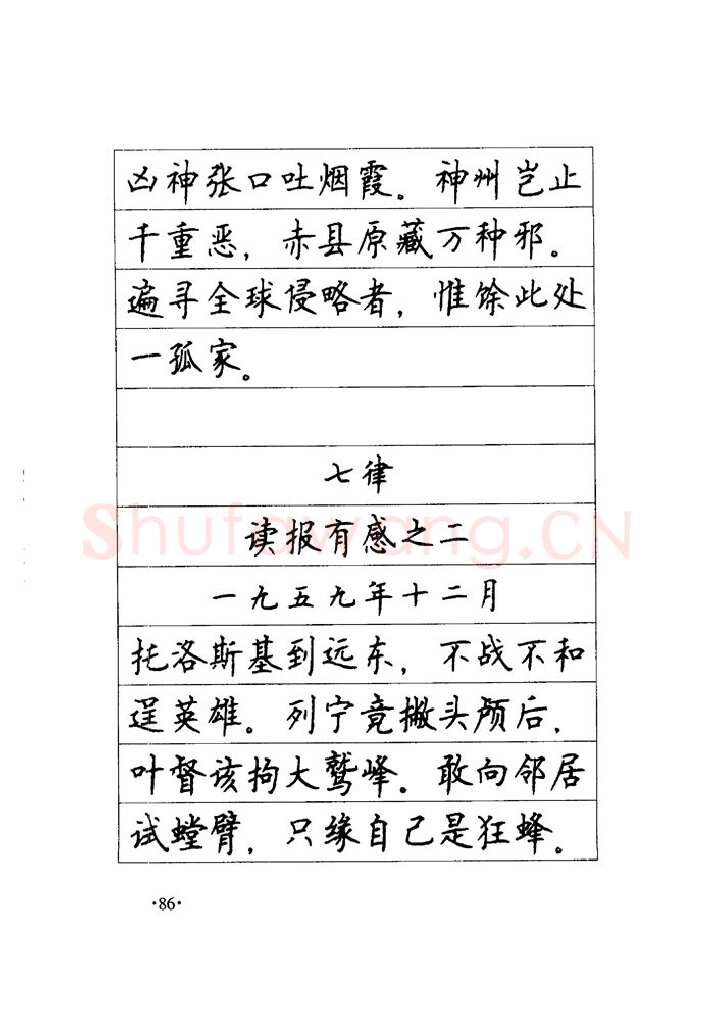 凶神张口吐烟霞。神州岂止
千重恶，赤县原藏万种邪。
遍寻全球侵略者，惟馀此处
一孤家。
七律
Shufawang.CN
读报有感之二
一九五九年十二月
托洛斯基到远东，不战不和
逞英雄。列宁竟撇头颅后，
叶督该拘大鹫峰。敢向邻居
试螳臂，只缘自己是狂蜂。
·86·